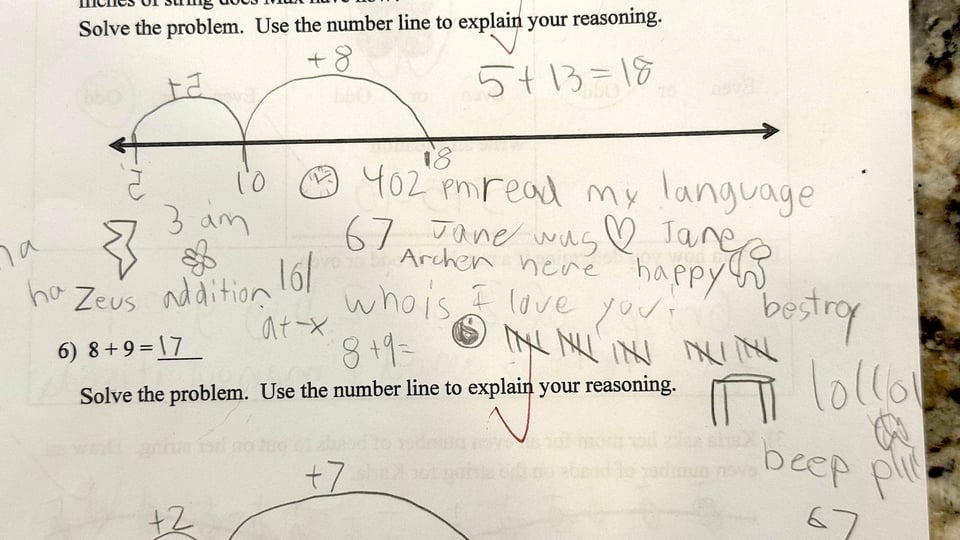 inches of string does Max have now?
Solve the problem. Use the number line to explain your reasoning.
+8
+5
5+13=18
5
10
18
402 pm read my language
3 am
67 Jane was ♡ Jane
Archer here happy
ha
ha Zeus addition 161
who is I love you!
bestroy
at-x
6) 8+9=17
8+9=
Solve the problem. Use the number line to explain your reasoning.
lollol
beep
+7
+2
67